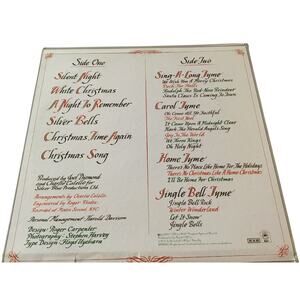 Side One
Silent Night
White Christmas
A Night To Remember
Silver Bells
Christmas Time Again
Christmas Song
Produced by
and Charlie Calello for
Silver Blue Productions Ltd.
Arrangements by Charlie Calello
Engineered by Roger
Recorded at Media Sound, NYC
Personal Management: Harold Davison
Design: Roger Carpenter
Photography: Stephen Harvey
Type Design:
Side Two
Sing-A-Long Tyme
We Wish You A Merry Christmas
Deck The Halls
Rudolph The Red-Nose Reindeer
Santa Claus Is Coming To Town
Carol Tyme
Oh Come All Ye Faithful
The First Noel
It Came Upon A Midnight Clear
Hark The Herald Angel's Sing
Joy To The World
We Three Kings
Oh Holy Night
Home Tyme
There's No Place Like Home For The Holidays
There's No Christmas Like A Home Christmas
I'll Be Home For Christmas
Jingle Bell Tyme
Jingle Bell Rock
Winter Wonderland
Let It Snow
Jingle Bells